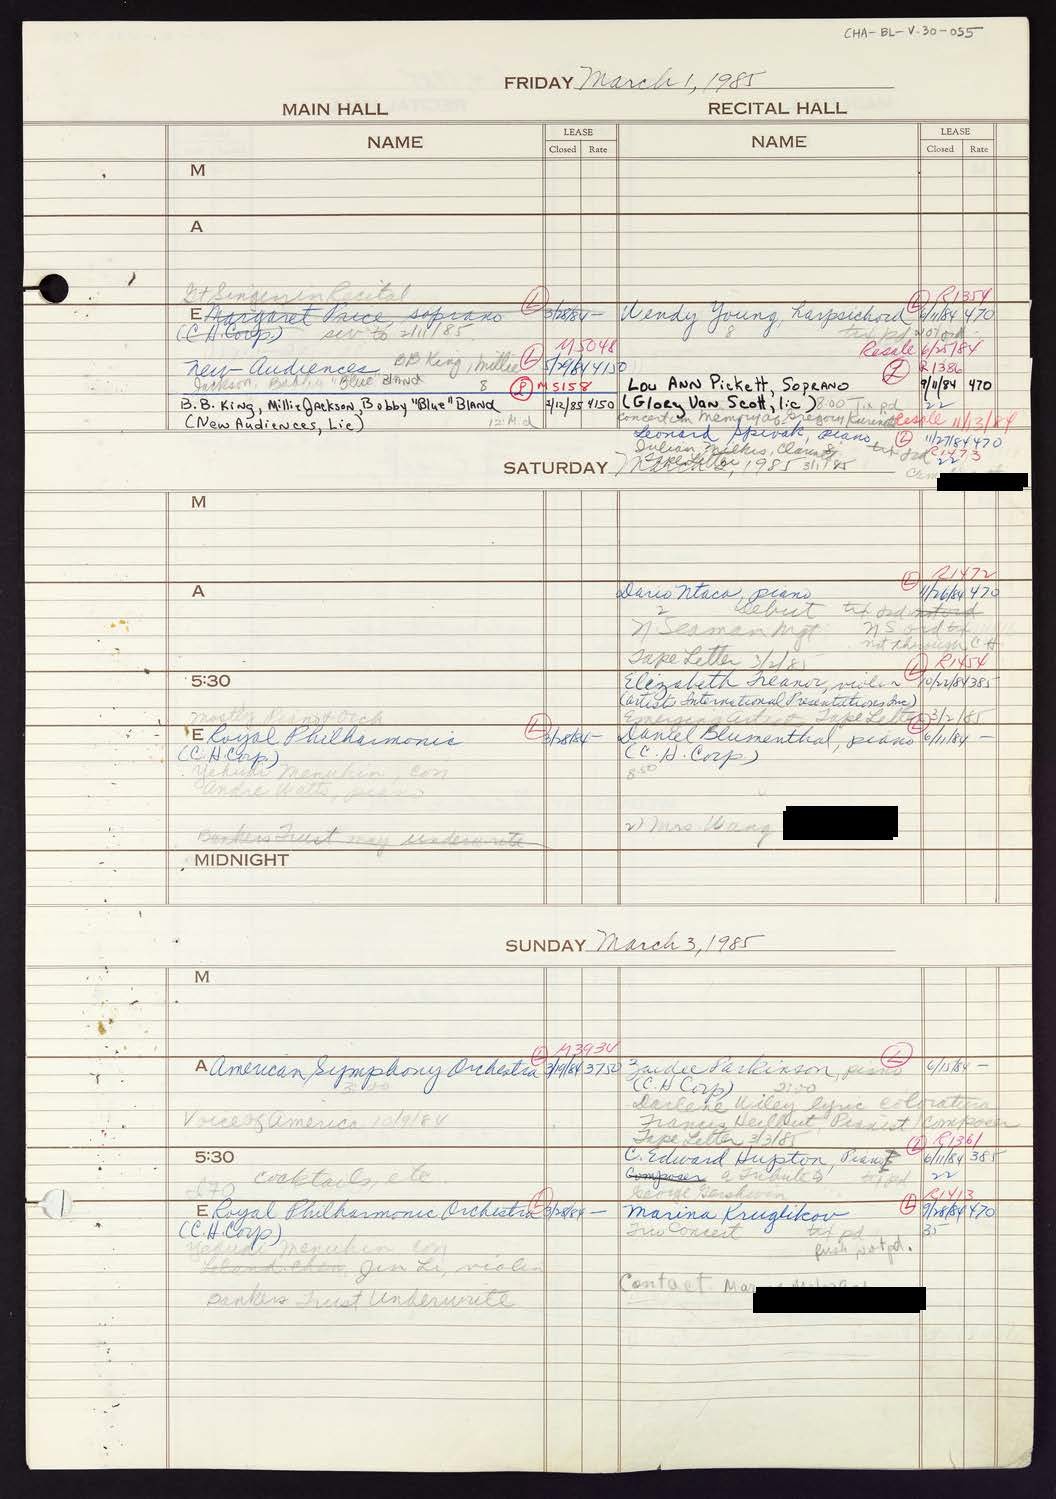 CHA-BL-V-30-055
FRIDAY March 1, 1985
MAIN HALL
RECITAL HALL
NAME
LEASE
Closed Rate
NAME
LEASE
Closed Rate
M
A
Gt Singers in Recital
E Margaret Price, soprano L 3/28/84 —
(C.H. Corp) sew to 2/11/85
M5048
New Audiences BB King, Millie L 5/29/84 4150
Jackson, Bobby "Blue" Bland 8 M5158
B.B. King, Millie Jackson, Bobby "Blue" Bland 2/12/85 4150
(New Audiences, Lic) 12 Mid
L R1354
Wendy Young, harpsichord 6/11/84 470
8 tix pd
Resale 6/25/84
L R1386
Lou Ann Pickett, Soprano 9/11/84 470
(Glory Van Scott, lic) 8:00 Tix pd 22
concert in Memory of Gregory Resale 11/13/84
Leonard Spivak, piano L 11/27/84 470
Julian Milkis, Clarinet 8 tix ord R1473
Tape Letter 3/1/85 22
SATURDAY March 2, 1985
M
A
L R1472
Dario Ntaca, piano 11/26/84 470
2 debut tix ord not ord
N Seaman Mgt NS ord tix
not through CH
Tape Letter 3/2/85
L R1454
5:30
Elizabeth Treanor, violin 10/22/84 385
(Artists International Presentations Inc)
Emerging Artist Tape Letter 3/2/85
Mostly Piano & Orch
E Royal Philharmonic L 3/28/84 —
(C.H. Corp)
Yehudi Menuhin, con
Andre Watts, piano
Bankers Trust may underwrite
Daniel Blumenthal, piano L 6/11/84 —
(C.H. Corp)
8:00
2) Mrs Wang
MIDNIGHT
SUNDAY March 3, 1985
M
L M3934
A American Symphony Orchestra 3/19/84 3750
3:00
Voice of America 10/9/84
L
Zaidee Parkinson, piano 6/15/84 —
(C.H Corp) 2:00
Darlene Wiley lyric coloratura
Francis Heilbut, Pianist/Composer
Tape Letter 3/3/85
L R1361
5:30
cocktails, etc
C. Edward Hupton, Pianist 6/11/84 385
Composer a Tribute to tix pd 22
George Gershwin
L R1413
E Royal Philharmonic Orchestra L 3/28/84 —
(C.H. Corp)
Yehudi Menuhin con
Leland Chen, Jin Li, violin
Bankers Trust Underwrite
Marina Kruglikov 9/28/84 470
Trio Concert tix pd 35
push not pd.
Contact